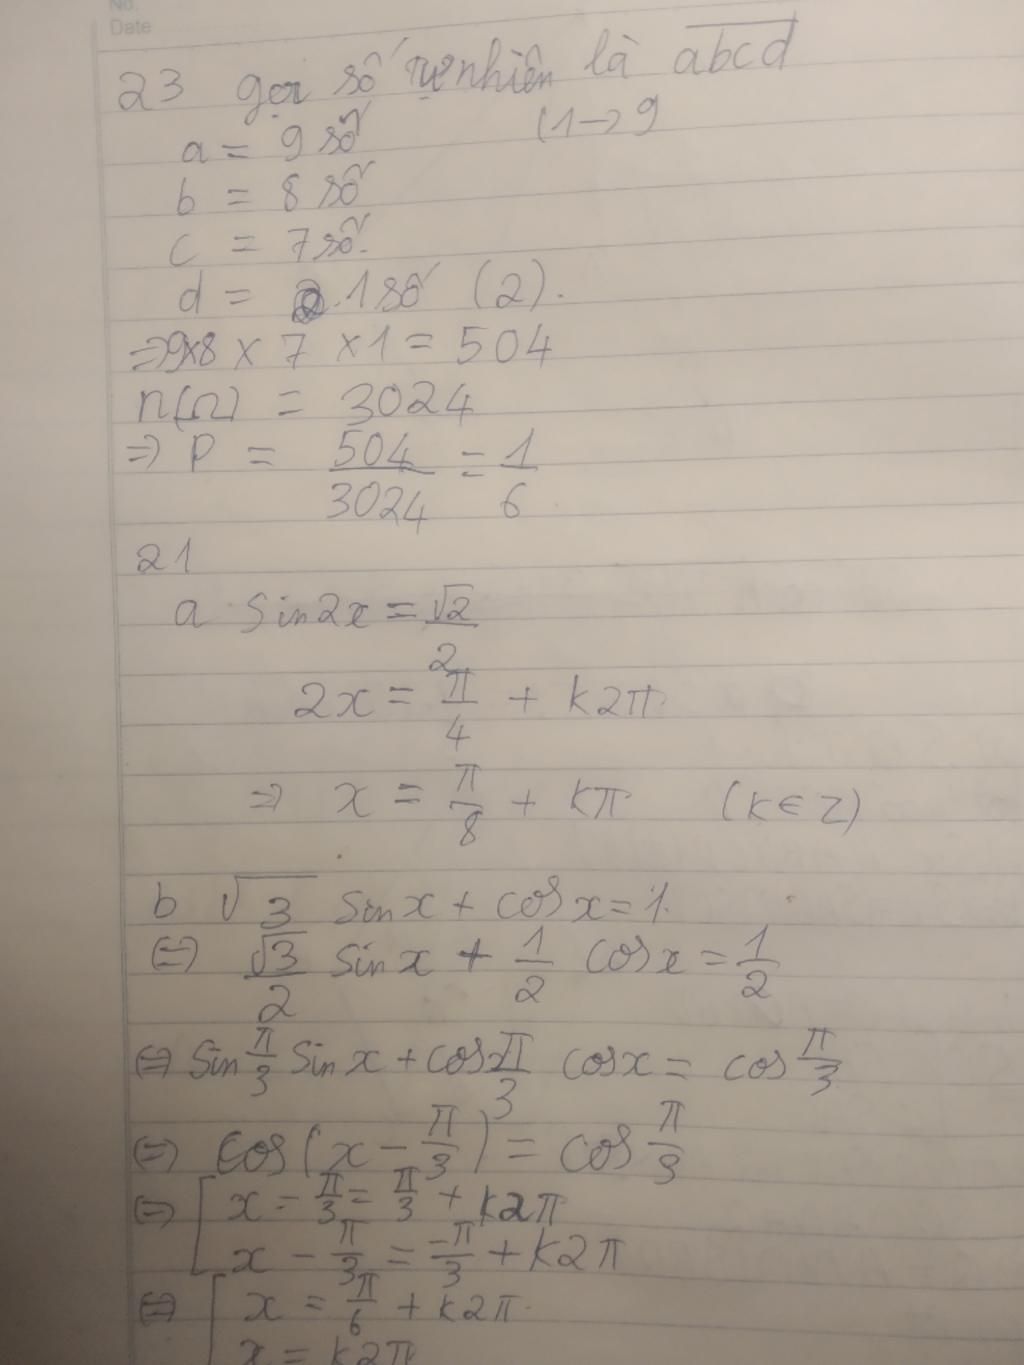 No.
Date
23 gọi số tự nhiên là abcd
a = 9 số (1→9
b = 8 số
c = 7 số.
d = 1 số (2).
⇒ 9×8 × 7 × 1 = 504
n(Ω) = 3024
⇒ P = 504/3024 = 1/6
21
a sin2x = √2/2
2x = π/4 + k2π
⇒ x = π/8 + kπ (k∈Z)
b √3 sinx + cosx = 1.
⇔ √3/2 sinx + 1/2 cosx = 1/2
⇔ sin π/3 sinx + cos π/3 cosx = cos π/3
⇔ cos(x - π/3) = cos π/3
⇔ [ x - π/3 = π/3 + k2π
x - π/3 = -π/3 + k2π
⇔ [ x = π/6 + k2π
x = k2π